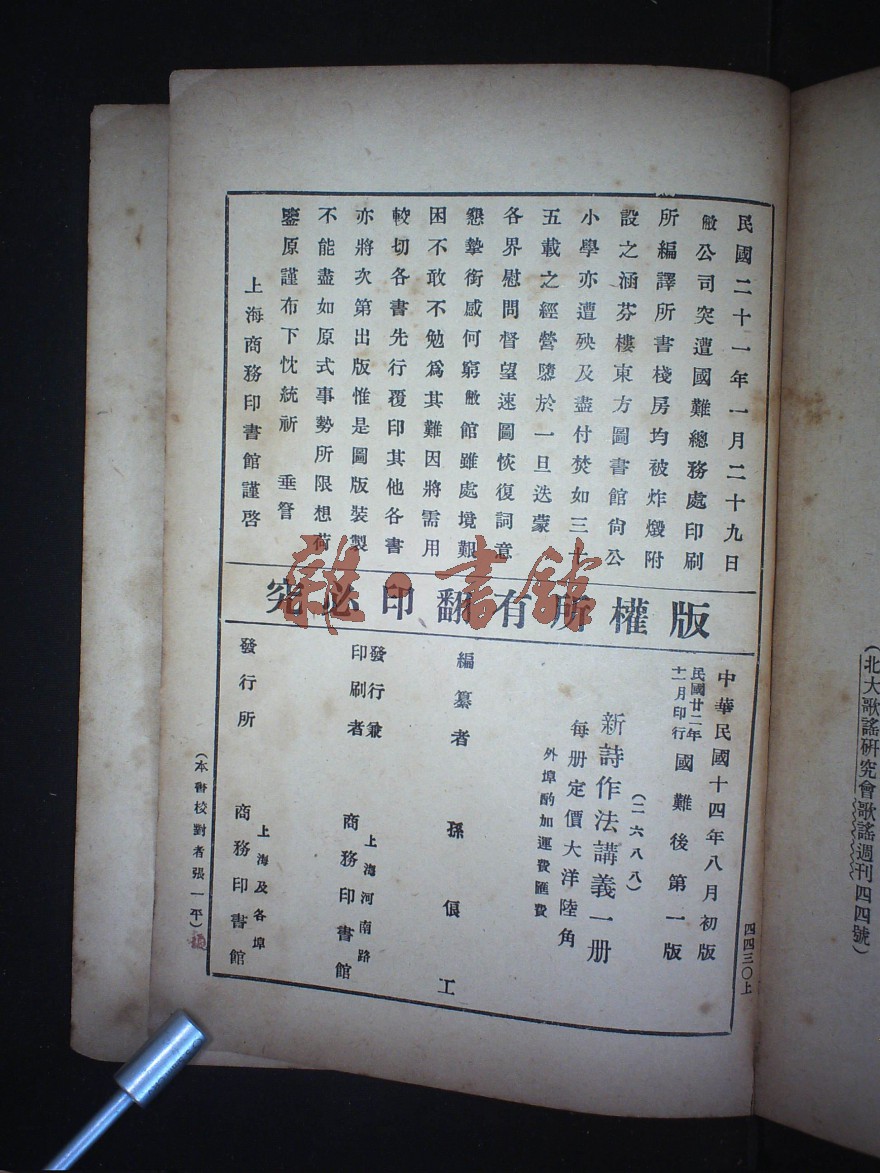 民國二十一年一月二十九日
敝公司突遭國難總務處印刷
所編譯所書棧房均被炸燬附
設之涵芬樓東方圖書館尙公
小學亦遭殃及盡付焚如三十
五載之經營隳於一旦迭蒙
各界慰問督望速圖恢復詞意
懇摯銜感何窮敝館雖處境艱
困不敢不勉爲其難因將需用
較切各書先行覆印其他各書
亦將次第出版惟是圖版裝製
不能盡如原式事勢所限想荷
鑒原謹布下忱統祈 垂詧
上海商務印書館謹啓
版權所有翻印必究
中華民國十四年八月初版
民國廿二年
十二月印行
國難後第一版
(二六八八)
新詩作法講義一册
每册定價大洋陸角
外埠酌加運費匯費
編纂者 孫俍工
發行兼
印刷者
上海河南路
商務印書館
發行所
上海及各埠
商務印書館
(本書校對者張一平)
四四三〇上
(北大歌謠研究會歌謠週刊四四號)
雜·書館